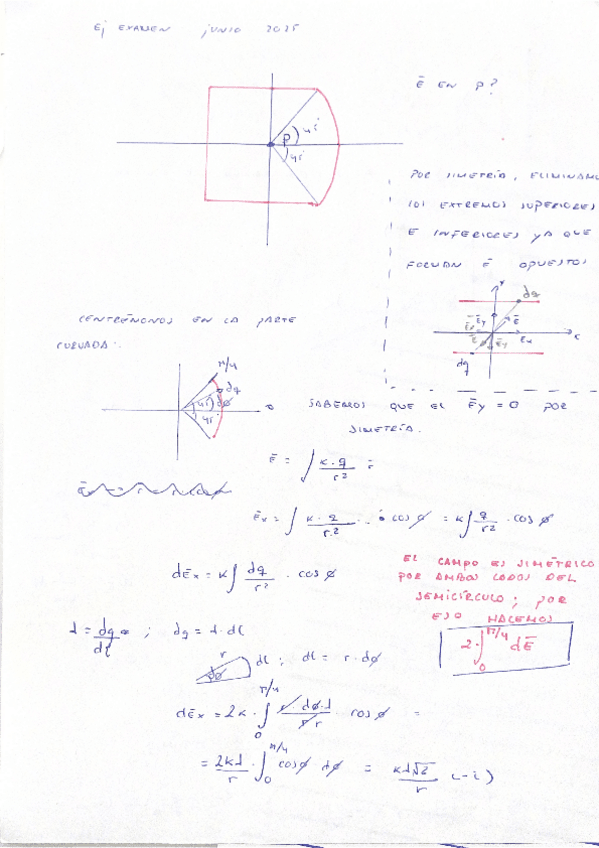 Ej EXAMEN JUNIO 2025
Ē EN P?
P
45
45
POR SIMETRÍA, ELIMINAMOS
LOS EXTREMOS SUPERIORES
E INFERIORES YA QUE
FORMAN Ē OPUESTOS
y
dq
Ēy Ē
Ēx
Ēx
Ē Ēy
x
dq
CENTRÉMONOS EN LA PARTE
CURVADA:
π/4
dq
45 dø
45
0
SABEMOS QUE EL Ēy = 0 POR
SIMETRÍA.
Ē = ∫ K·q/r² r̄
Ēx = ∫ K·q/r² · cos ø = K∫ q/r² · cos ø
dĒx = K∫ dq/r² · cos ø
EL CAMPO ES SIMÉTRICO
POR AMBOS LADOS DEL
SEMICÍRCULO; POR
ESO HACEMOS
2·∫₀^π/4 dĒ
λ = dq/dl ; dq = λ·dl
r dø dl ; dl = r·dø
dĒx = 2K·∫₀^π/4 r·dø·λ/r·r · cos ø =
= 2Kλ/r · ∫₀^π/4 cos ø dø = Kλ√2/r (-i)